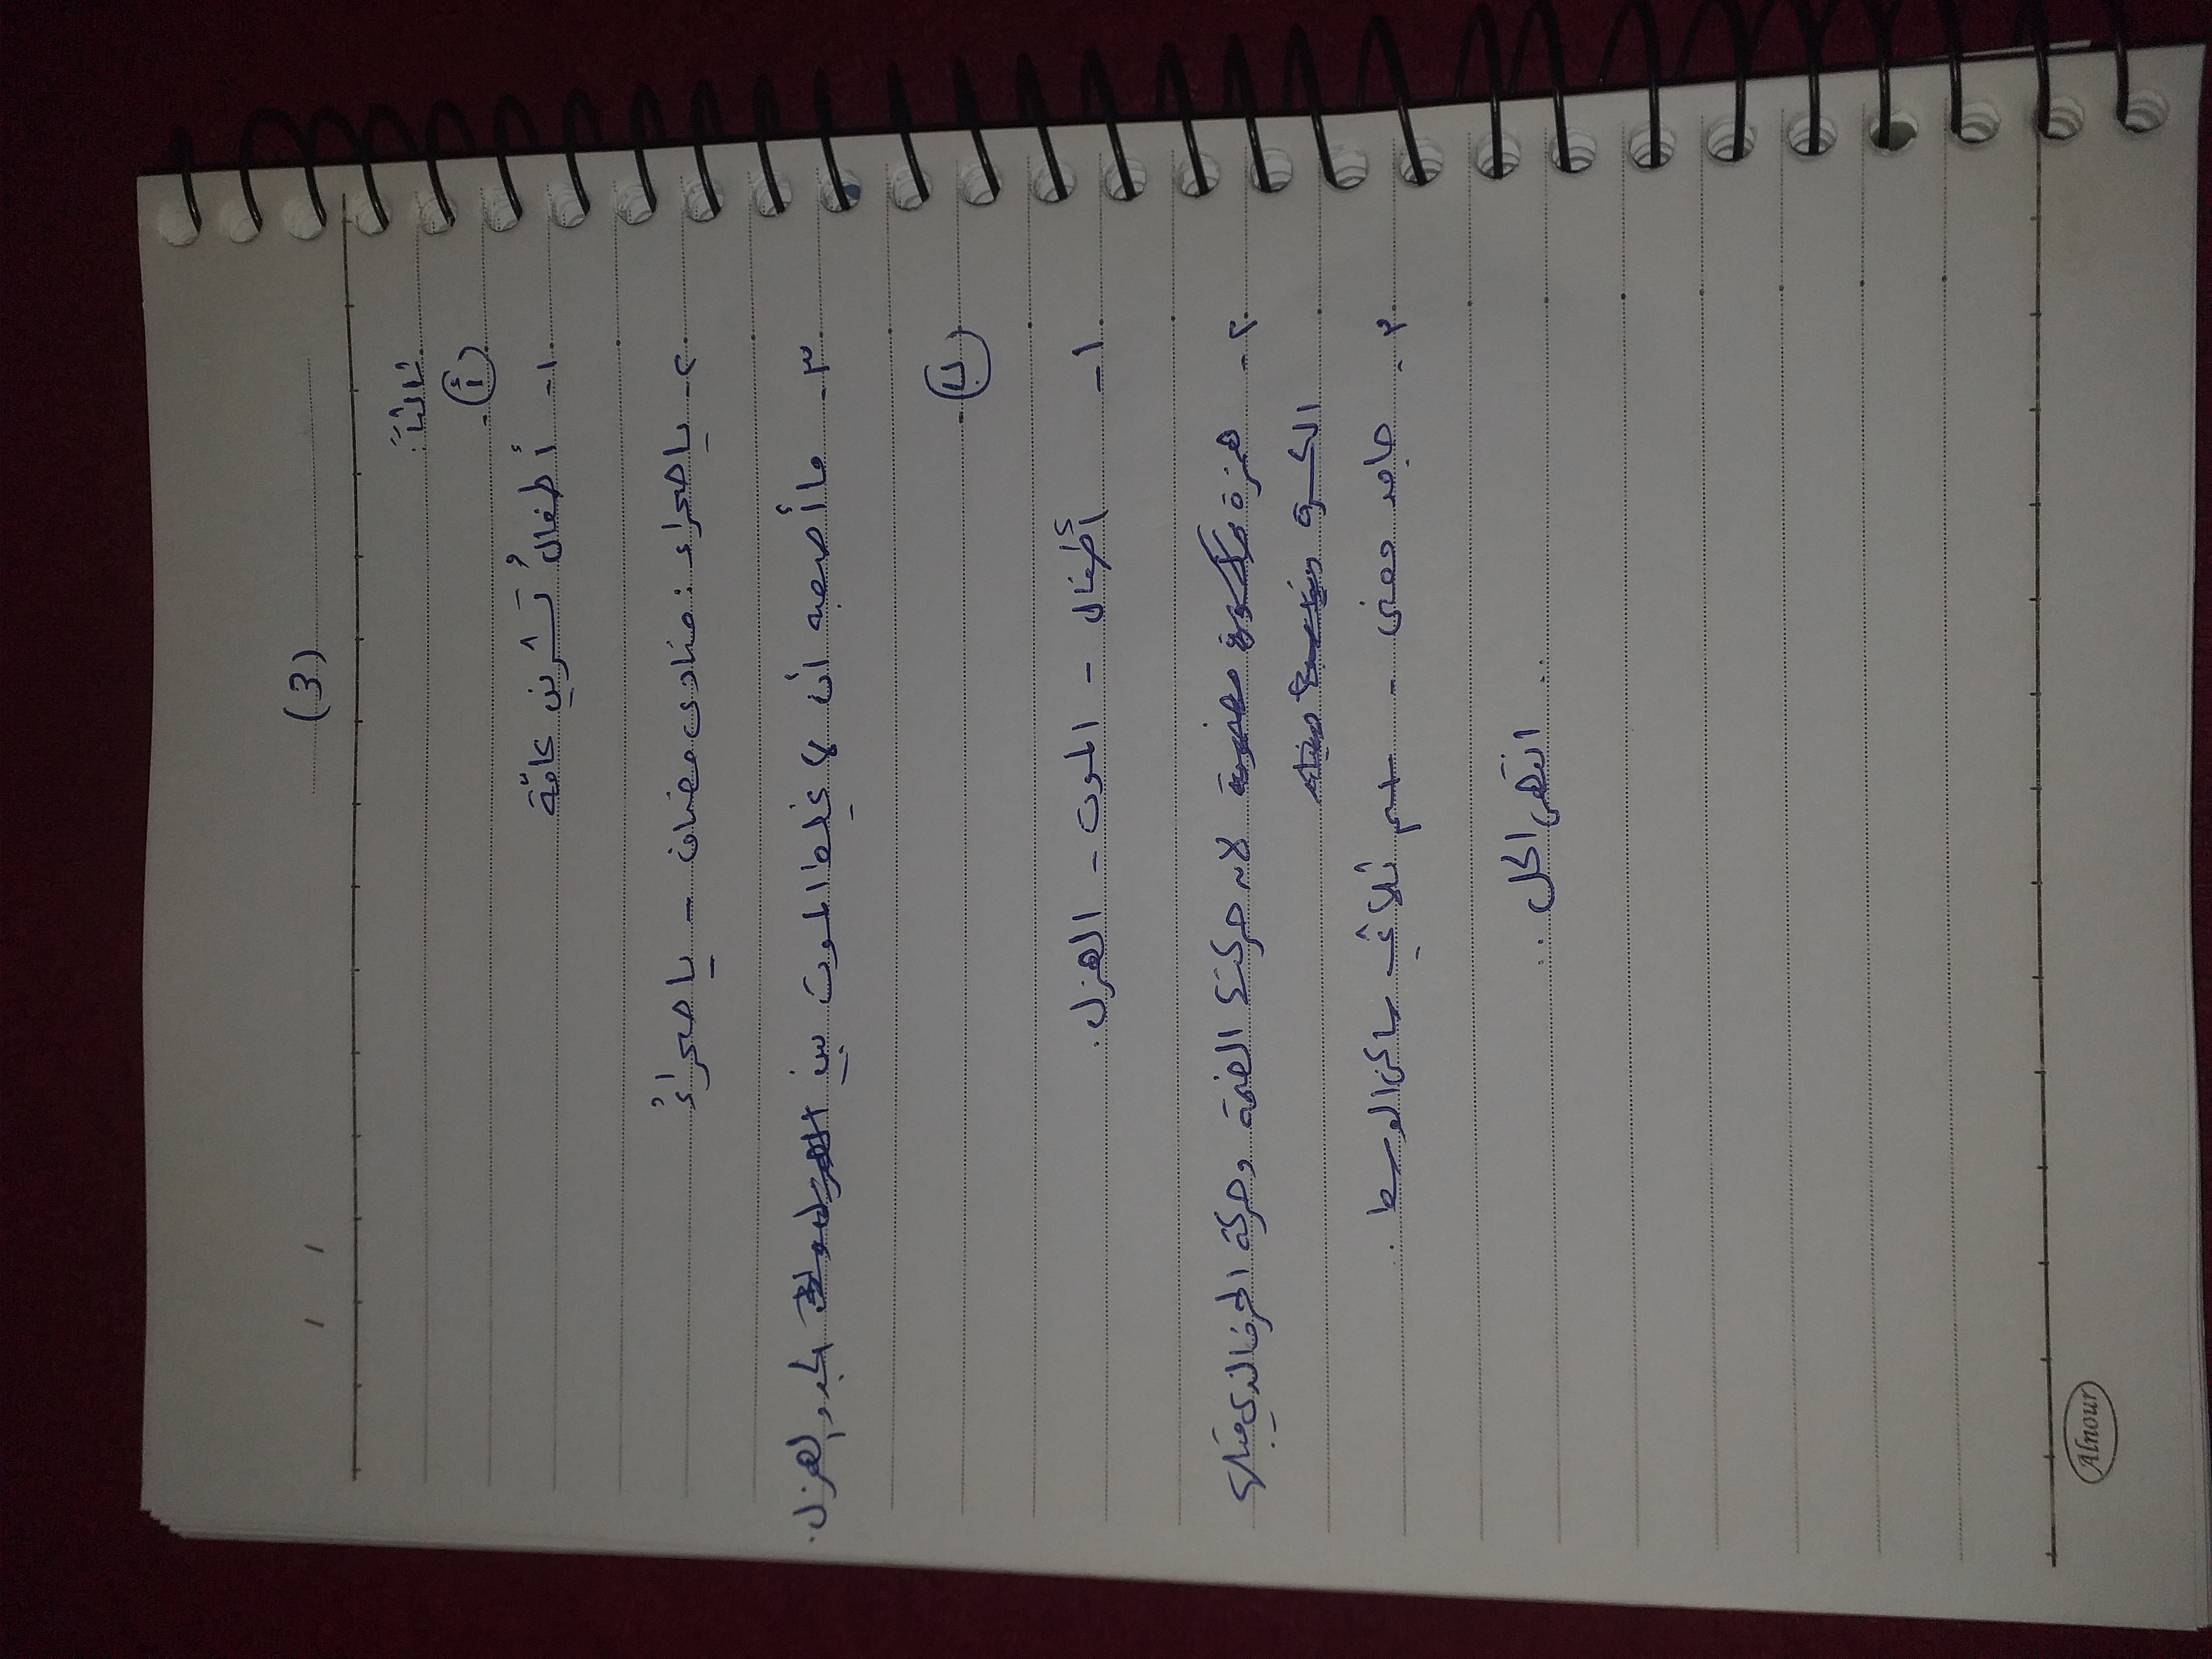 (3)
/ /
ثالثاً:
أ
١- أطفالُ تَشرين عامّة
٢- يا صحراء: منادى مضاف - يا صحراءُ
٣- ما أصعبه أن لا غلط الموت بين الجد والهزل.
ب
١- أطفال - الموت - الهزل.
٢- همزة لأنه حركتها الضمة وحركة الحرف الذي قبلها
الكسرة
٣- جامد معنى - اسم ثلاثي ساكن الوسط.
.. انتهى الحل ..
Alnour